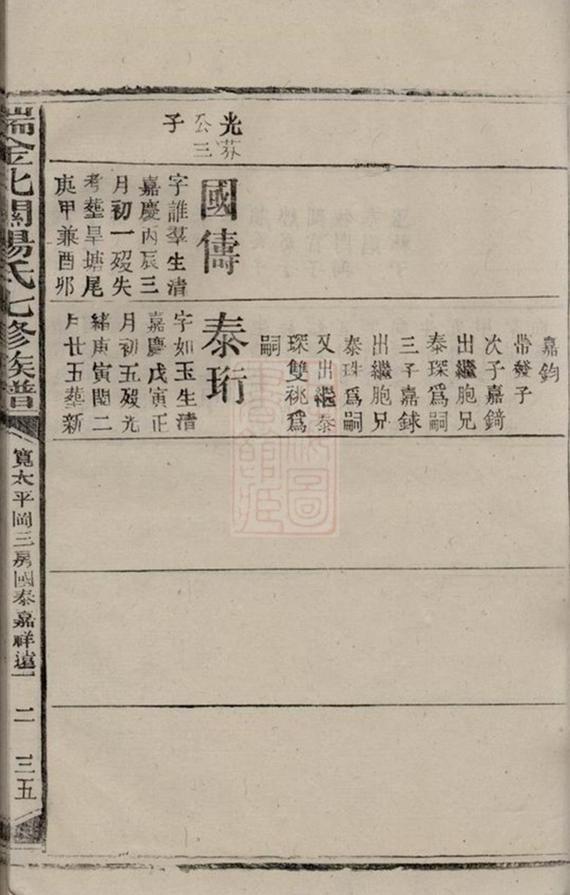 光蘇
公三
子
國儔
字誰羣生清
嘉慶丙辰三
月初一歿失
考塟旱塘尾
庚甲兼酉夘
嘉鈞
帶發子
次子嘉錡
出繼胞兄
泰琛爲嗣
三子嘉銶
出繼胞兄
泰珠爲嗣
又出繼泰
琛雙祧爲
嗣
泰珩
字如玉生清
嘉慶戊寅正
月初五歿光
緒庚寅閏二
月廿五塟新
瑞金北關楊氏七修族譜
寬太平岡三房國泰嘉祥遠一
二
三五